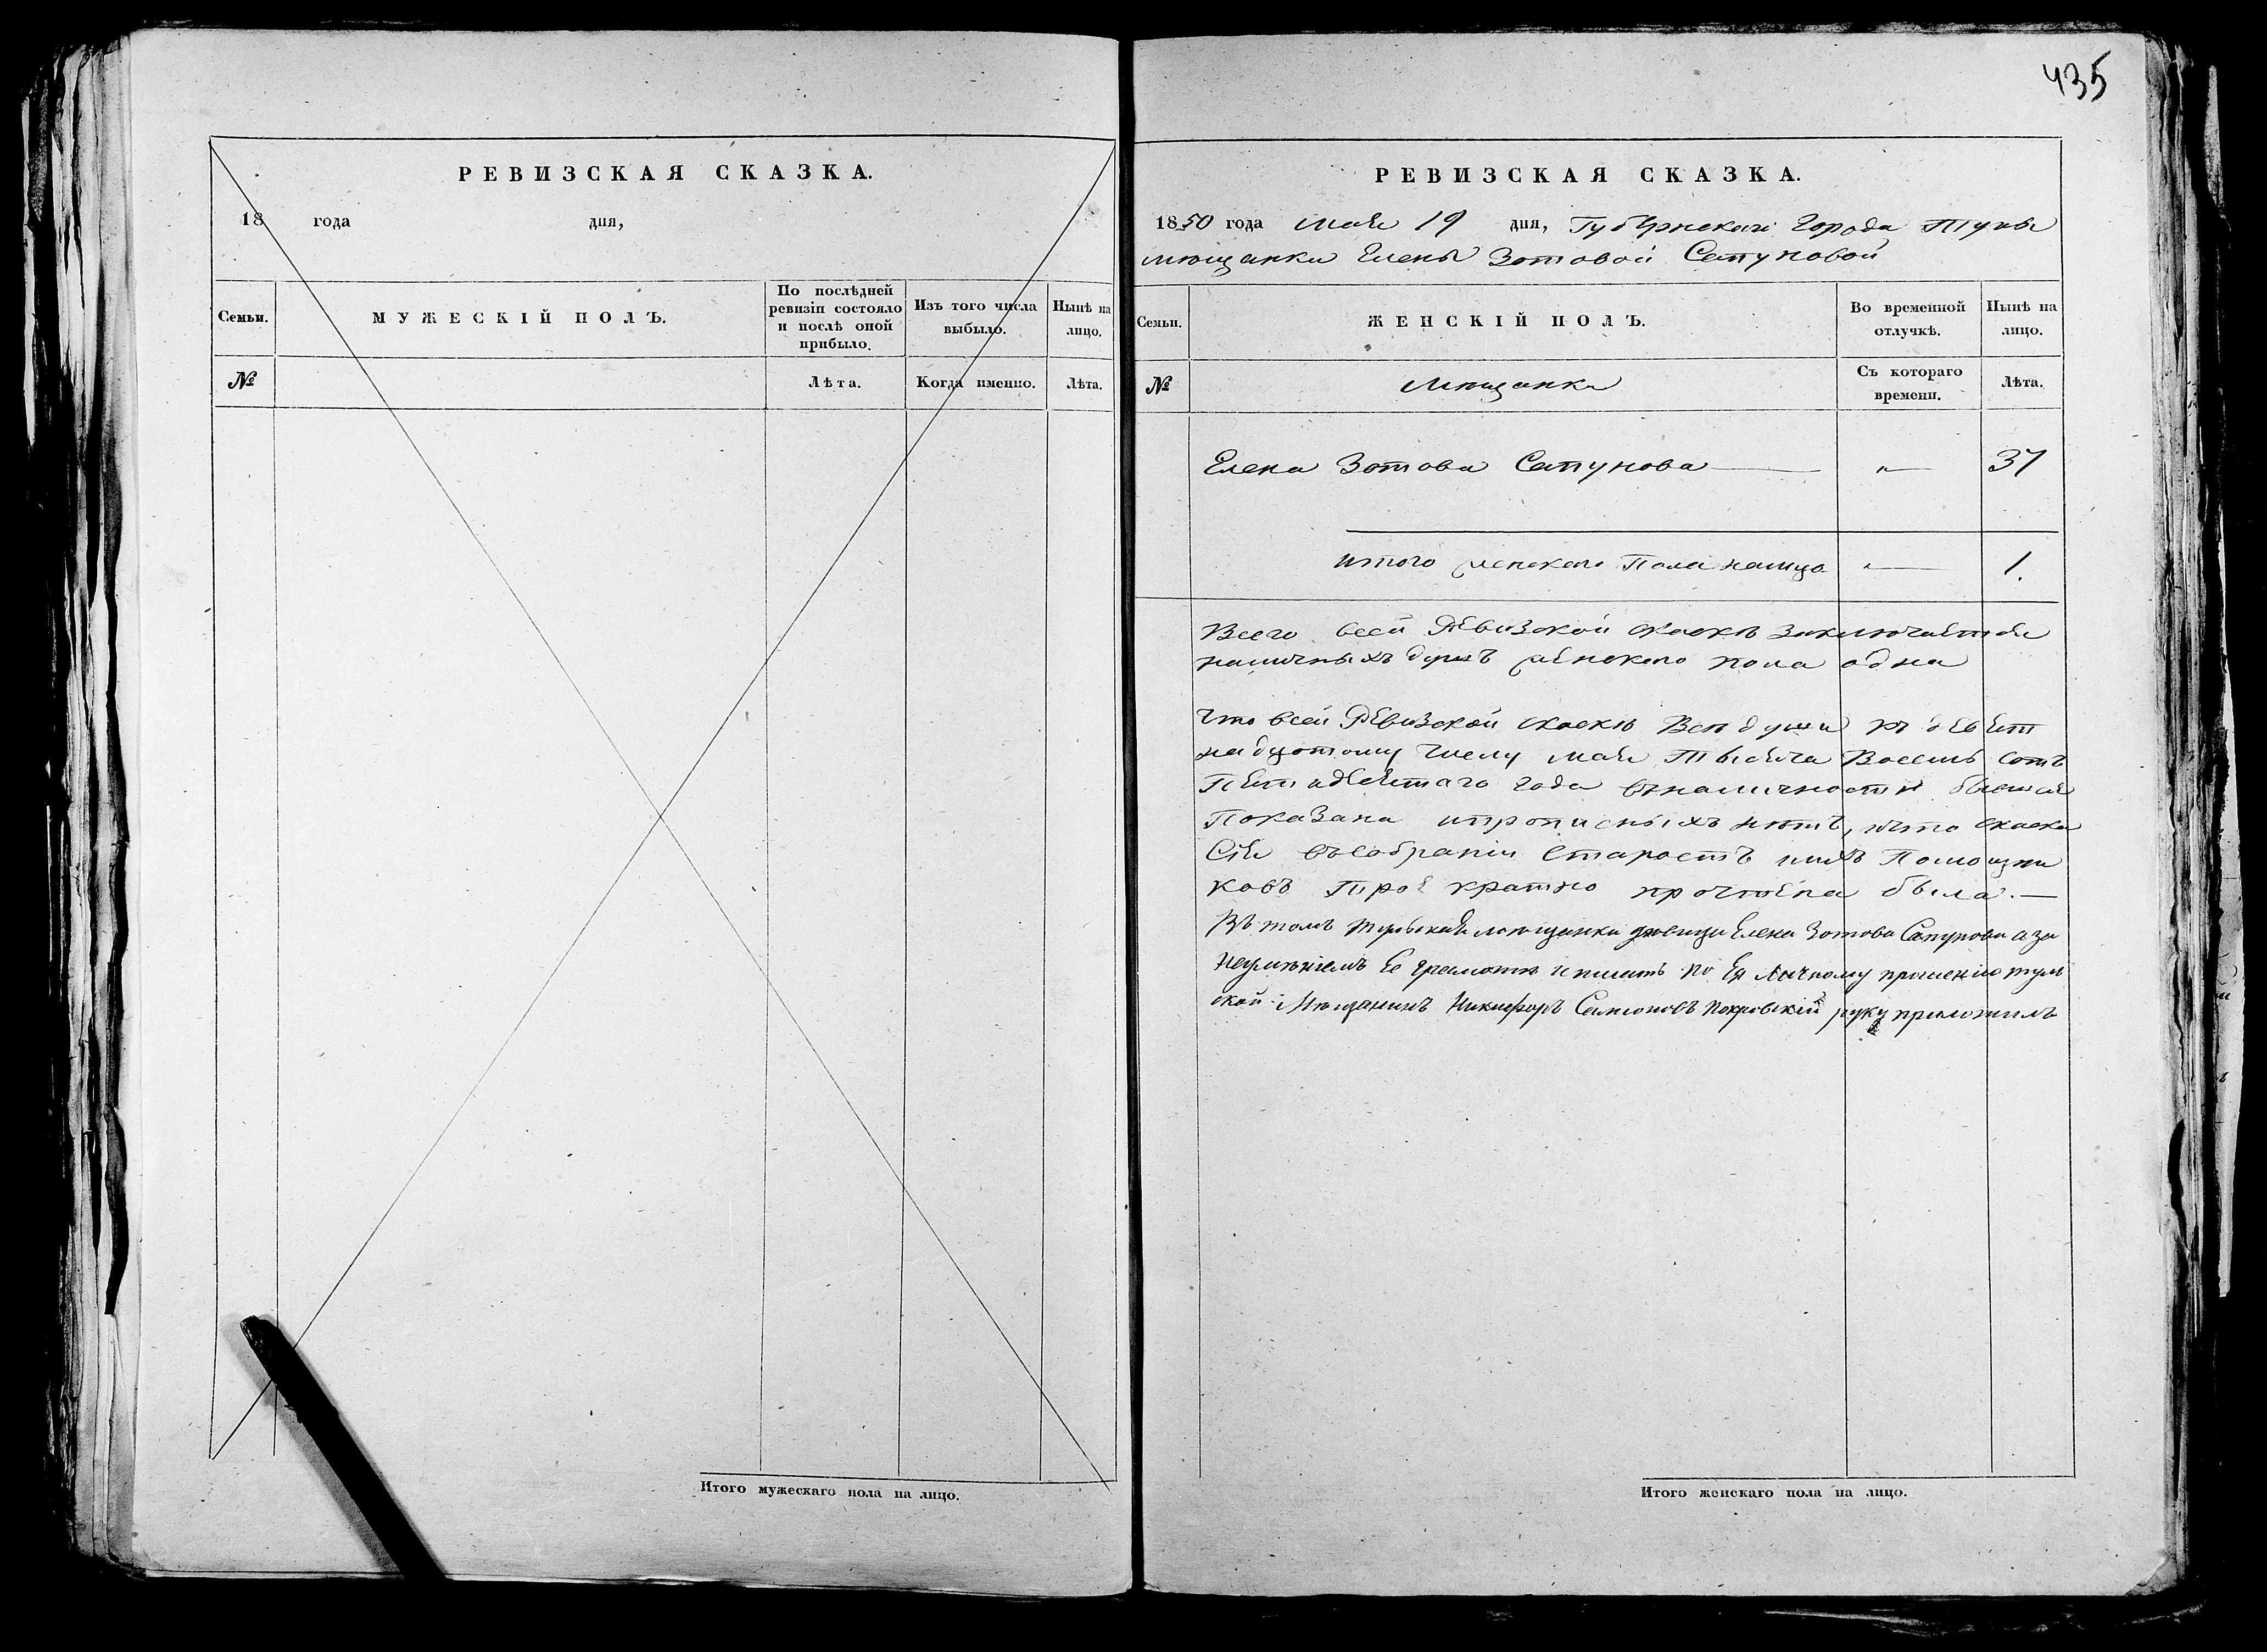 435
РЕВИЗСКАЯ СКАЗКА.
18 года дня,
Семьи.
МУЖЕСКІЙ ПОЛЪ.
По послѣдней ревизіи состояло и послѣ оной прибыло.
Изъ того числа выбыло.
Нынѣ на лицо.
№
Лѣта.
Когда именно.
Лѣта.
Итого мужескаго пола на лицо.
РЕВИЗСКАЯ СКАЗКА.
1850 года мая 19 дня, Губернскаго Города Тулы
мѣщанки Елены Зотовой Сапуновой
Семьи.
ЖЕНСКІЙ ПОЛЪ.
Во временной отлучкѣ.
Нынѣ на лицо.
№
Мѣщанка
Съ котораго времени.
Лѣта.
Елена Зотова Сапунова — „— 37
итого женскаго Пола налицо „— 1.
Всего всей Ревизской скаскѣ заключается
наличныхъ душъ женского пола одна
Что всей Ревизской скаскѣ Всѣ души къ девят
надцотому числу мая Тысяча Восемь сотъ
Пятидесятаго года въналичности бывшая
Показана ипрописныхъ нѣтъ, что скаска
Сія въсобраніи Старостъ иихъ Помощни
ковъ Трое кратно прочтена была. —
Въ томъ тульская мѣщанка девица Елена Зотова Сапунова а за
Неумѣніемъ Ее грамотѣ и писать по Ея личному прошенію туль
ской Мѣщанинъ Никифоръ Самсоновъ Покровскій руку приложилъ
Итого женскаго пола на лицо.